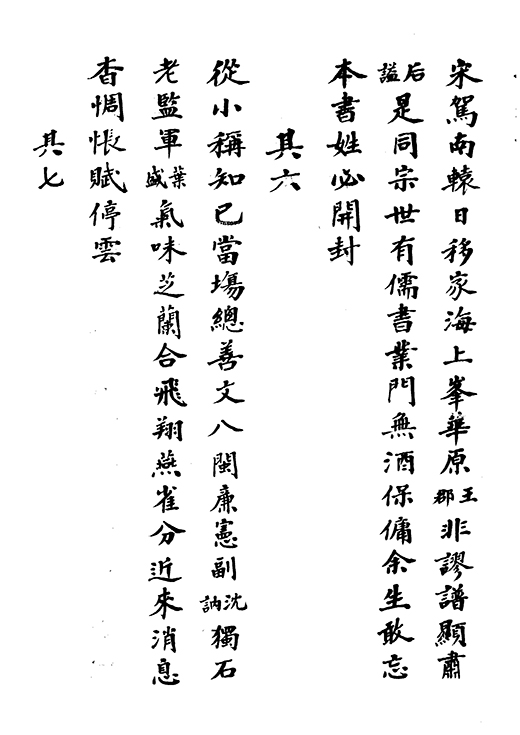 宋駕南轅日移家海上峯華原王郡非謬譜顯肅
后諡是同宗世有儒書業門無酒保傭余生敢忘
本書姓必開封
其六
從小稱知己當場總善文八閩廉憲副沈訥獨石
老監軍葉盛氣味芝蘭合飛翔燕雀分近來消息
杳惆悵賦停雲
其七